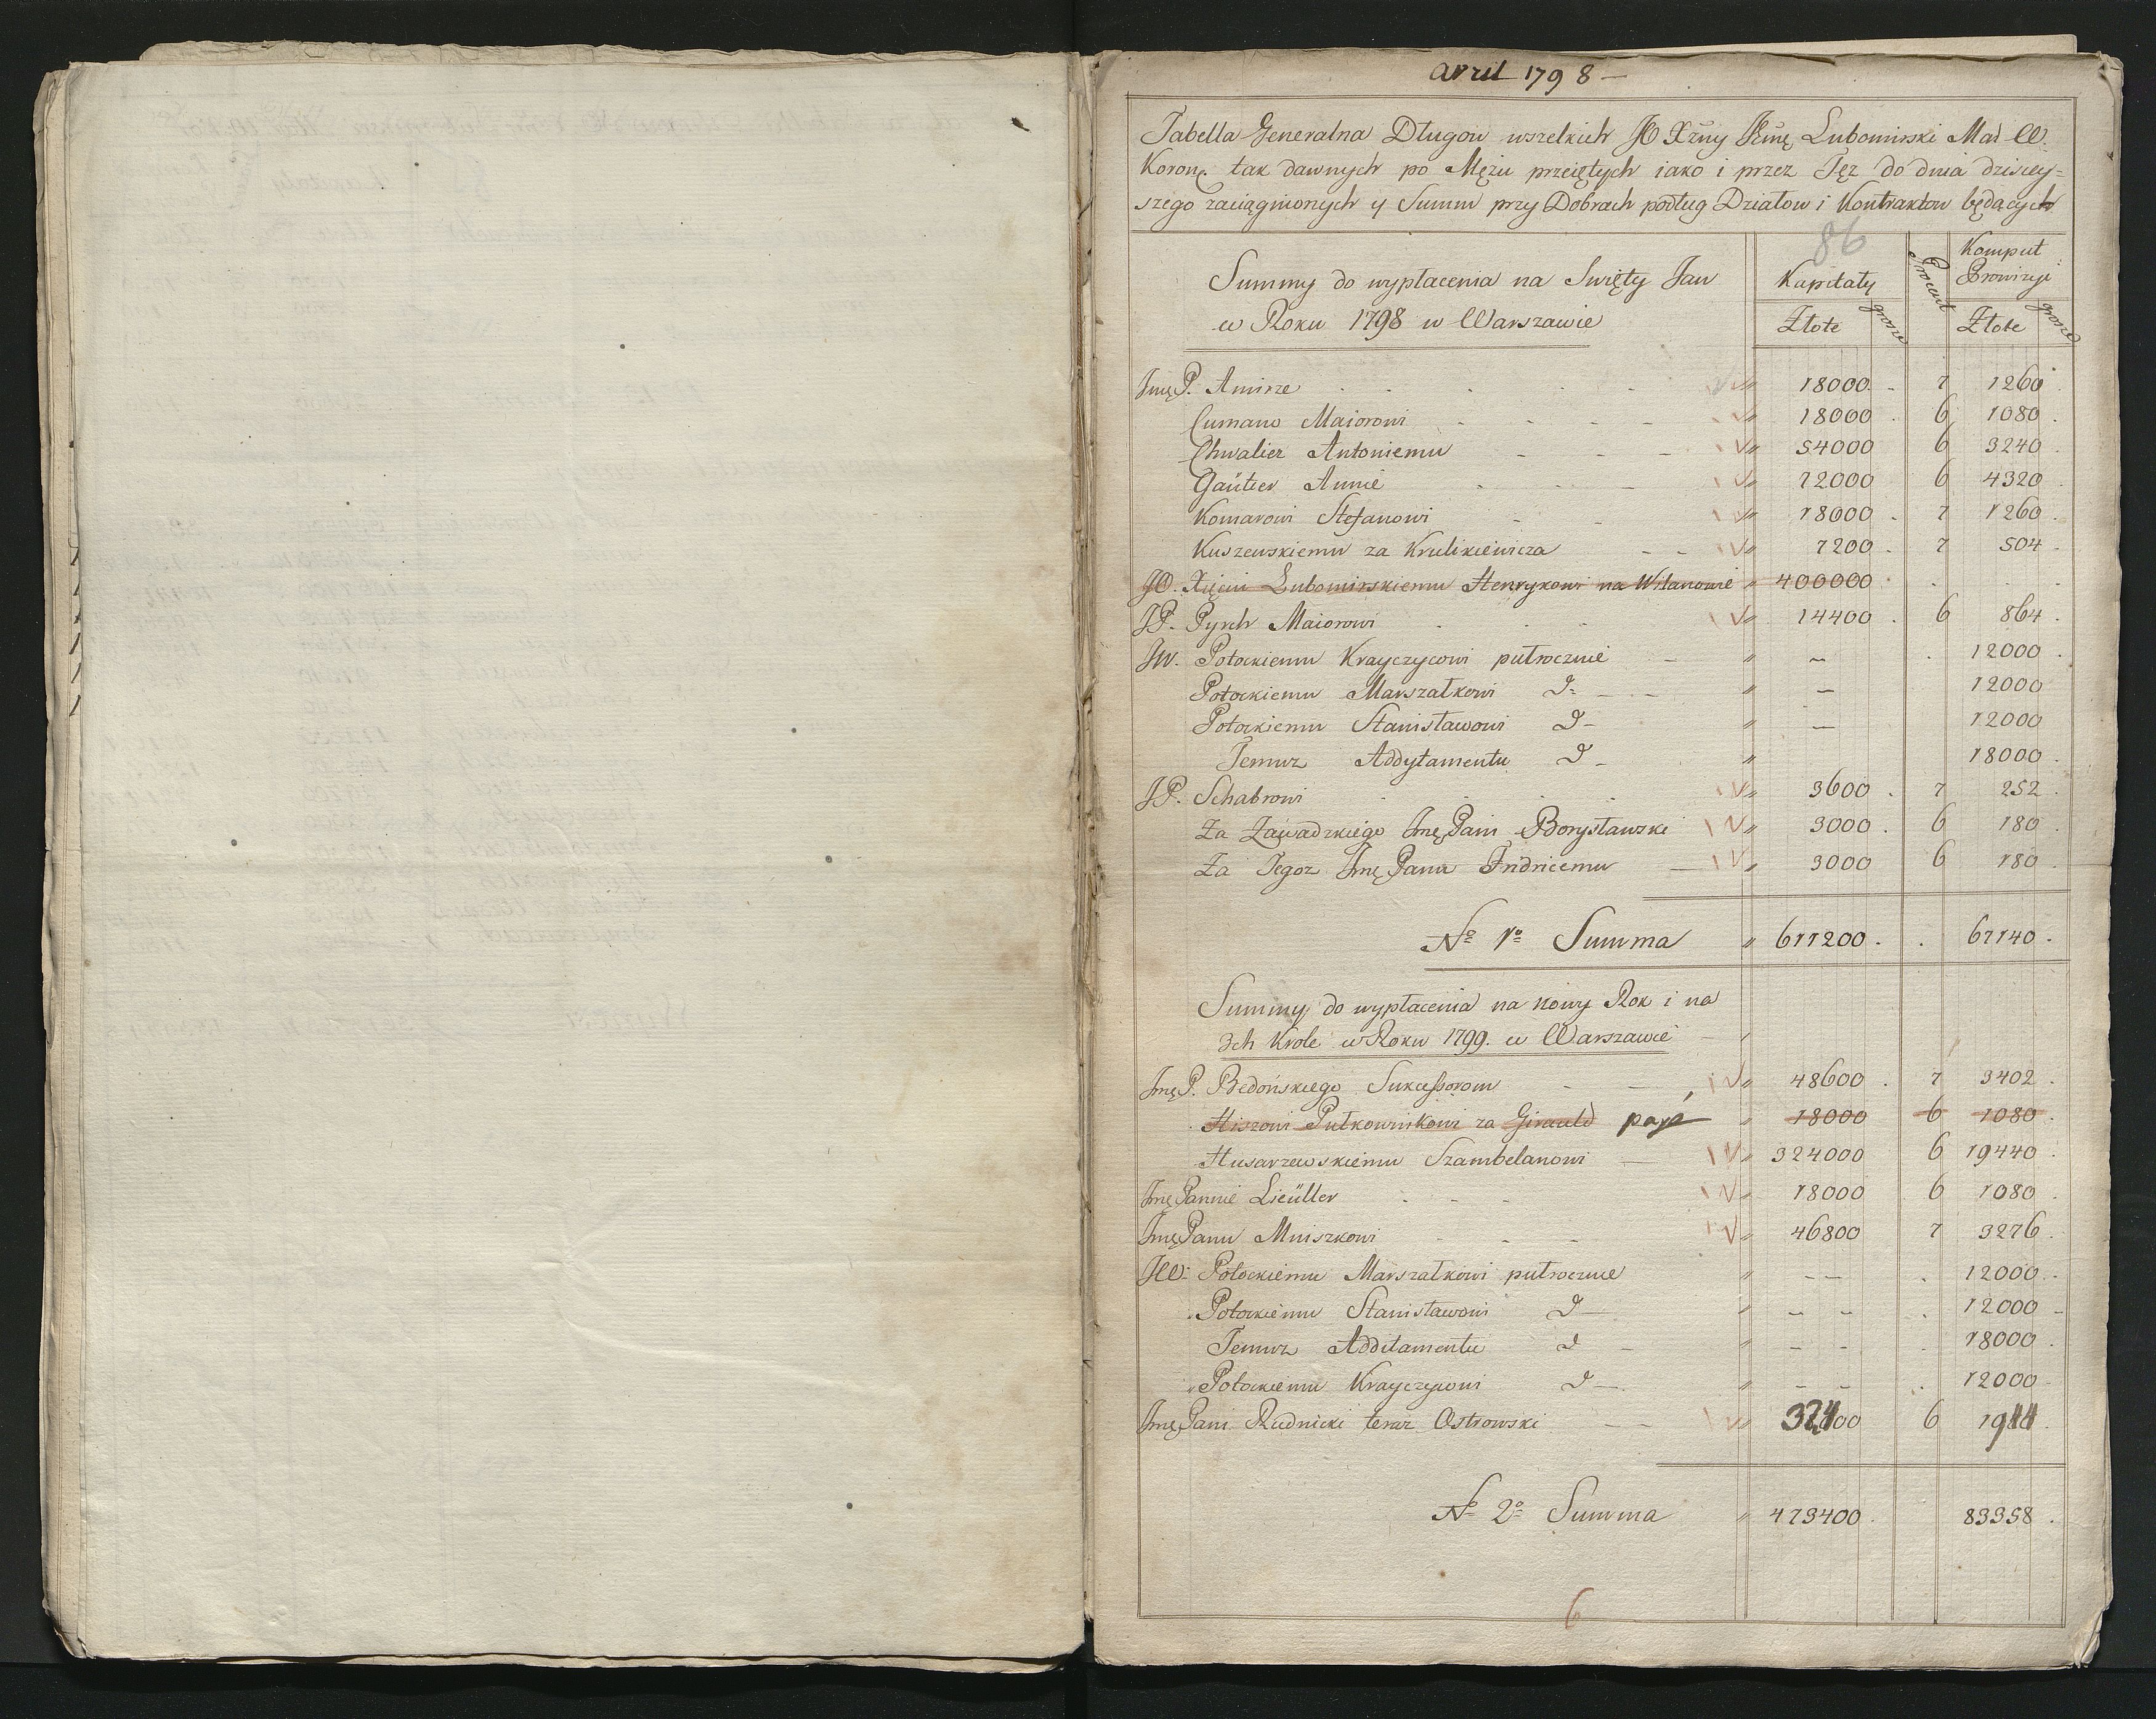 avril 1798 —
Tabella Generalna Długow wszelkich JO Xżny Jmę Lubomirski Mar W.
Koronę. tak dawnych po Mężu przeiętych iako i przez Tęz do dnia dzisiey=
szego zaciągnionych y Summ przy Dobrach podług Działow i Kontraktow będących
86
Summy do wypłacenia na Swięty Jan
w Roku 1798 w Warszawie
Kapitały
Złote grosze
Procent
Komput
Prowizyi
Złote grosze
JmęP. Amirze 18000 7 1260
Cumano Maiorowi 18000 6 1080
Chwalier Antoniemu 54000 6 3240
Gaütier Annie 72000 6 4320
Komarowi Stefanowi 18000 7 1260
Kuszewskiemu za Krulikiewicza 7200 7 504
JO. Xięciu Lubomirskiemu Henrykowi na Wilanowie 400000
JP. Pyrch Maiorowi 14400 6 864
JW. Potockiemu Krayczycowi pułrocznie — 12000
Potockiemu Marszałkowi D= — 12000
Potockiemu Stanisławowi D — 12000
Temuz Addytamentu D 18000
JP. Schabrowi 3600 7 252
Za Zawadzkiego Jmę Pani Borysławski 3000 6 180
Za Tegoz Jmę Panu Fridricemu 3000 6 180
No 1o Summa 611200 67140
Summy do wypłacenia na nowy Rok i na
3ch Krole w Roku 1799. w Warszawie
JmęP. Bedońskiego Sukcessorom 48600 7 3402
Hiszowi Pułkownikowi za Girauld payé 18000 6 1080
Husarzewskiemu Szambelanowi 324000 6 19440
Jmę Pannie Lieüller 18000 6 1080
Jmę Panu Mniszkowi 46800 7 3276
JW: Potockiemu Marszałkowi pułrocznie 12000
Potockiemu Stanisławowi D 12000
Temuz Additamentu D 18000
Potockiemu Krayczycowi D 12000
Jmę Pani Rudnicki teraz Ostrowski 32400 6 1944
No 2o Summa 473400 83358
6